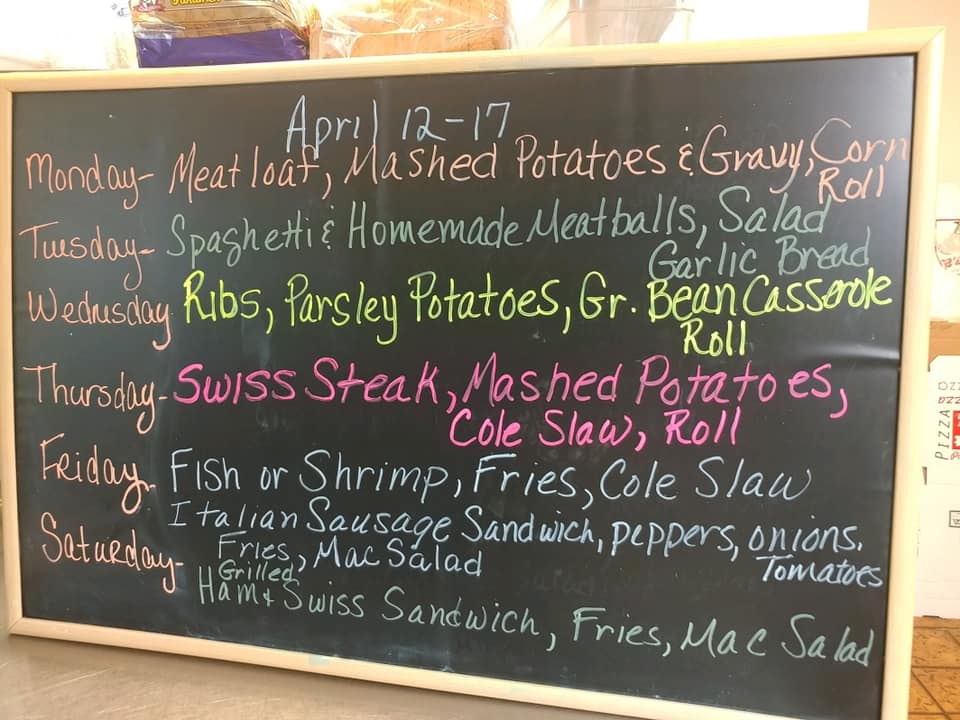 April 12-17
Monday- Meatloaf, Mashed Potatoes & Gravy, Corn
Roll
Tuesday- Spaghetti & Homemade Meatballs, Salad
Garlic Bread
Wednesday Ribs, Parsley Potatoes, Gr. Bean Casserole
Roll
Thursday- Swiss Steak, Mashed Potatoes,
Cole Slaw, Roll
Friday- Fish or Shrimp, Fries, Cole Slaw
Saturday- Italian Sausage Sandwich, peppers, onions.
Tomatoes
Fries, Mac Salad
Grilled
Ham & Swiss Sandwich, Fries, Mac Salad
PIZZA